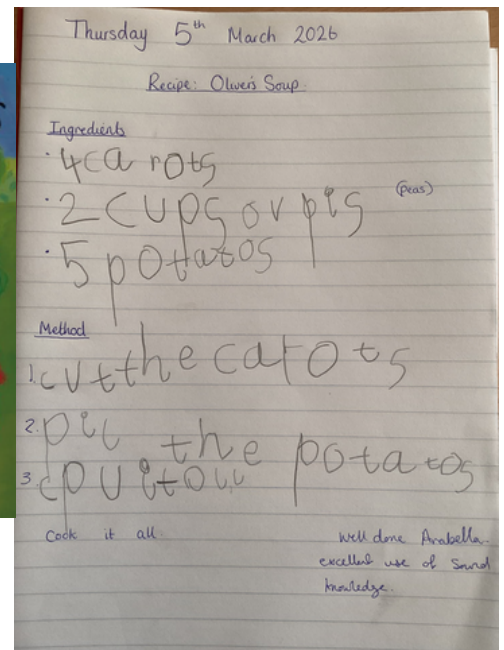 Thursday 5th March 2026
Recipe: Oliver's Soup.
Ingredients
· 4 carots
· 2 cups ov pis (peas)
· 5 potatos
Method
1. cut the carots
2. pil the potatos
3. cpuitoll
Cook it all.
Well done Arabella.
excellent use of sound
knowledge.